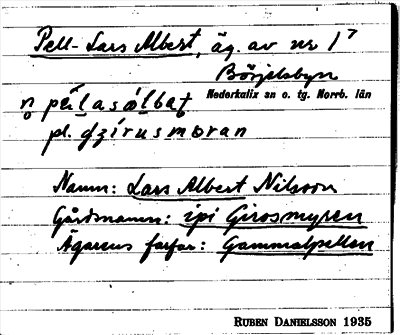 Pell-Lars Albert, äg. av nr 1⁷
Börjelsbyn
Nederkalix sn o. tg. Norrb. län
pel̲asal̲bat
pl. gzirusmoran
Namn: Lars Albert Nilsson
Gårdsnamn: ipi Girosmyren
Ägarens farfar: Gammalpellen
RUBEN DANIELSSON 1935